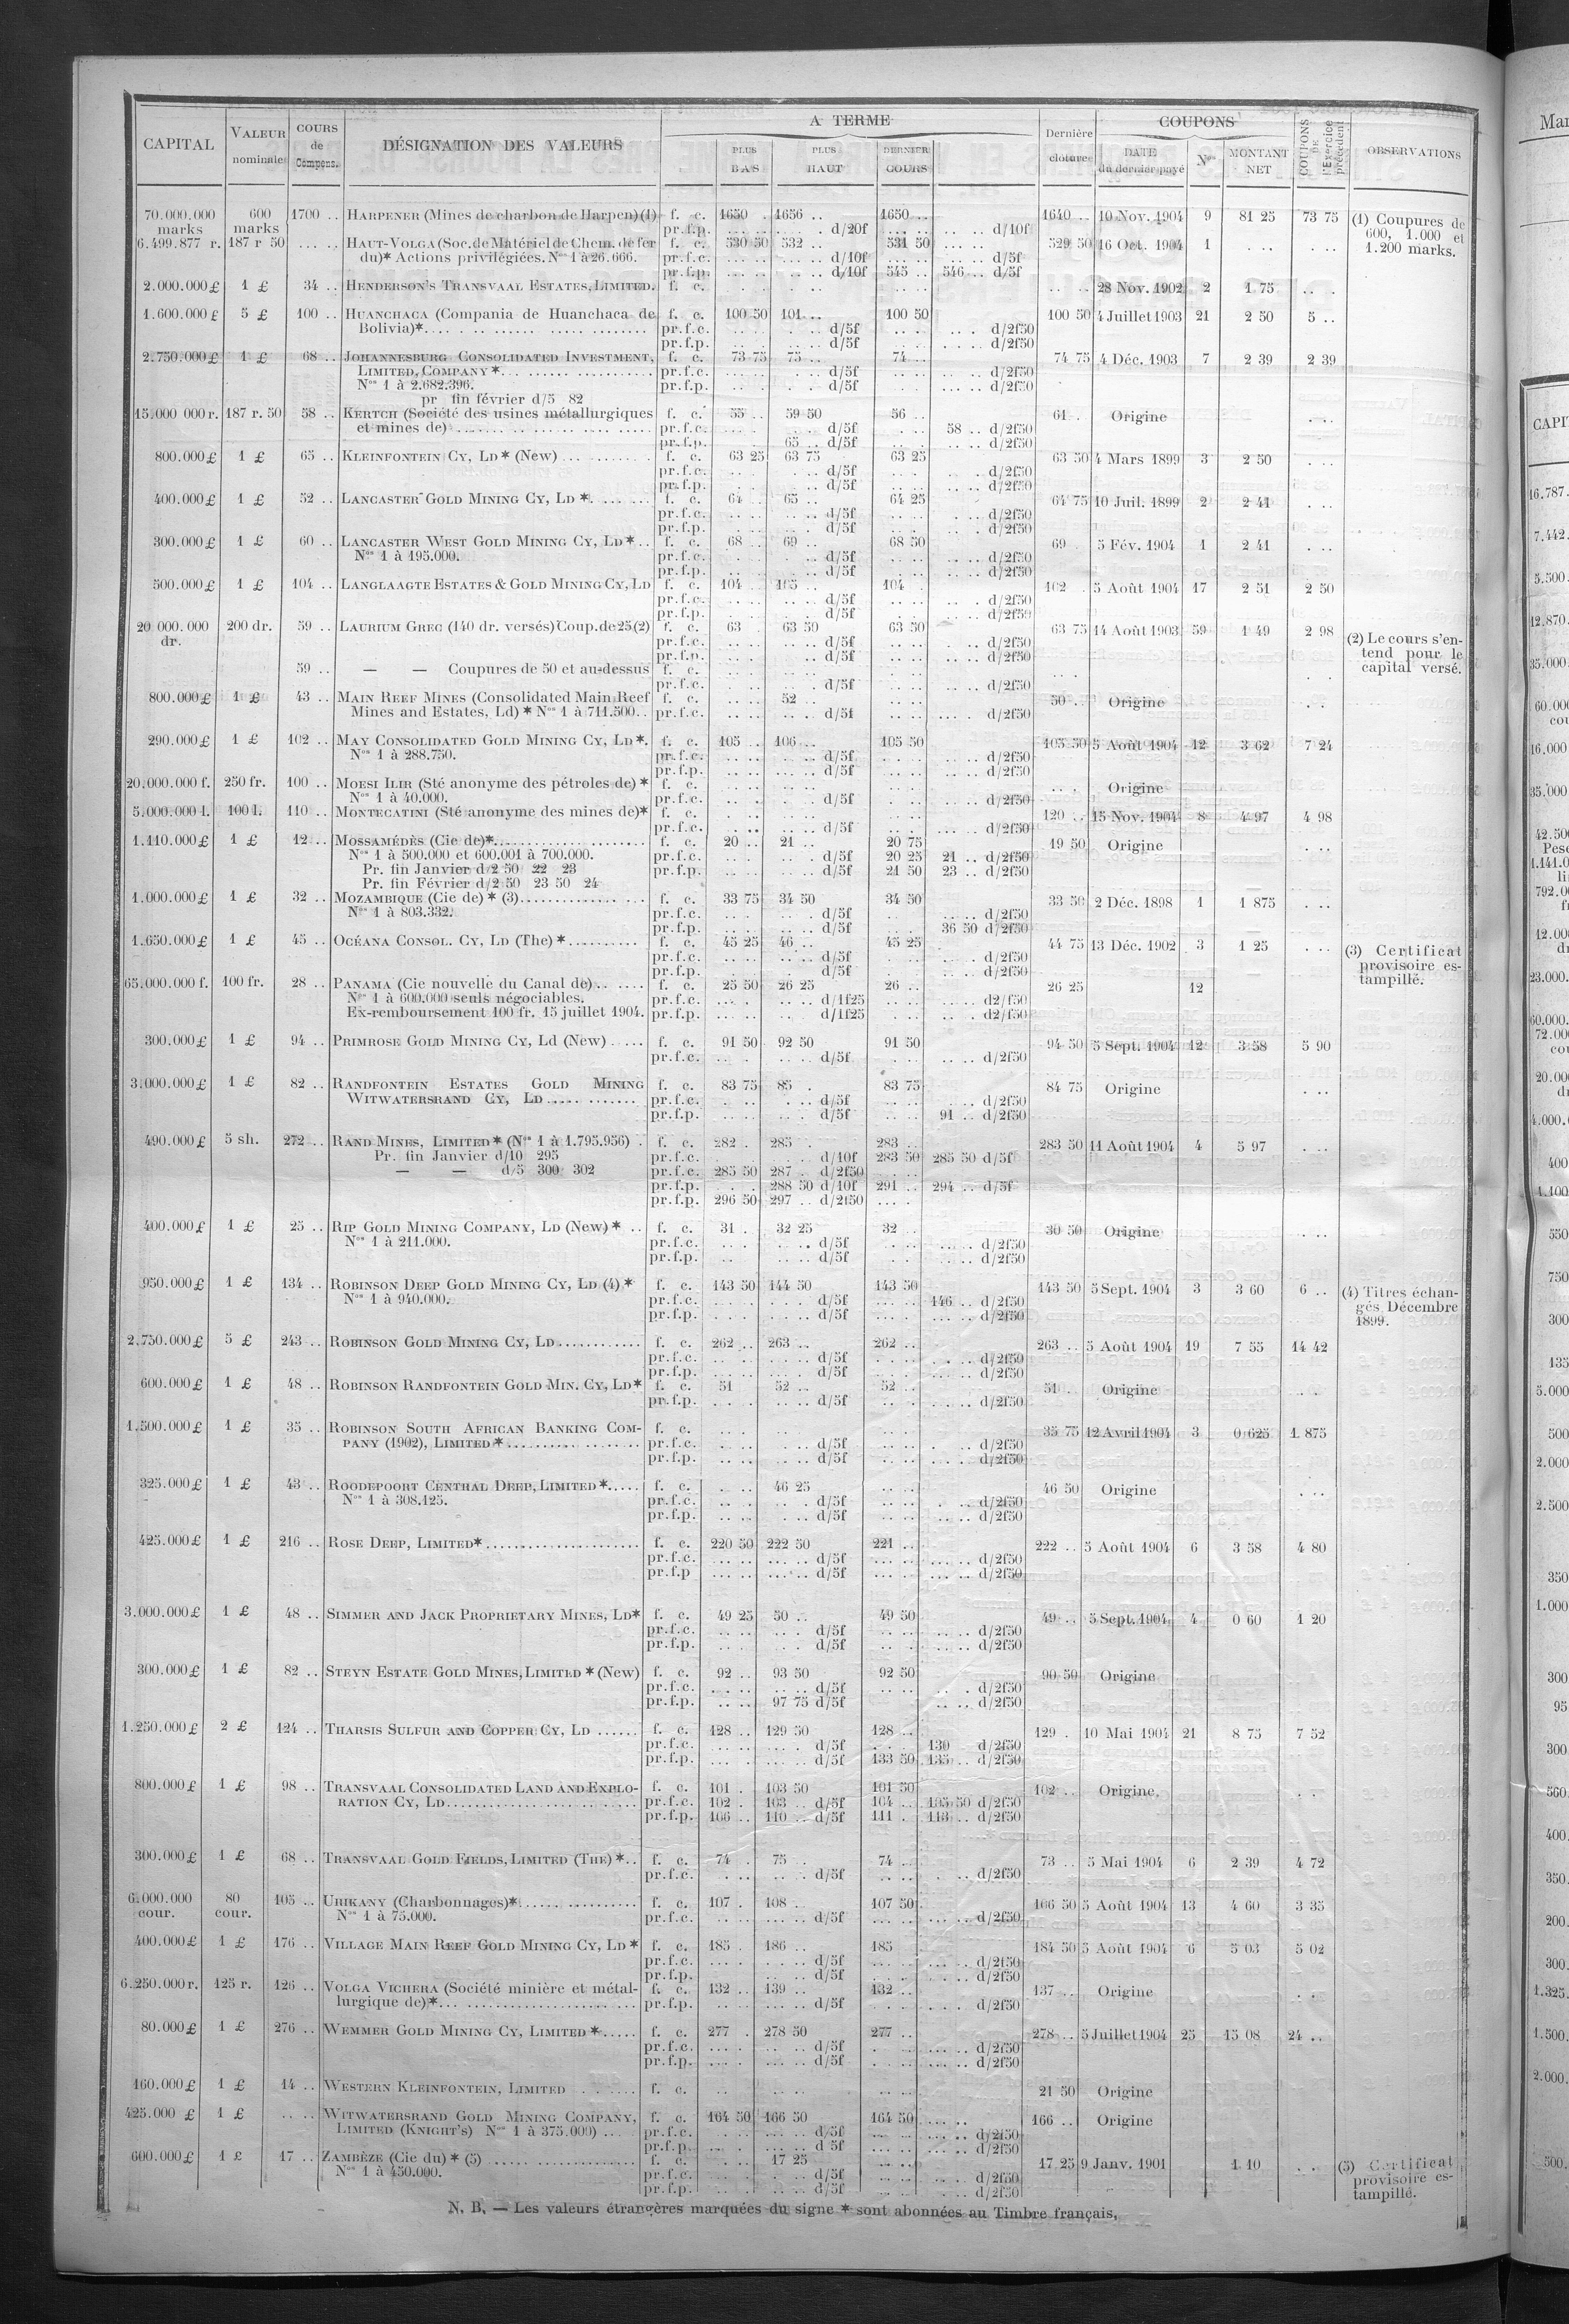 CAPITAL VALEUR nominale COURS de Compens. DÉSIGNATION DES VALEURS A TERME PLUS BAS PLUS HAUT DERNIER COURS Dernière cloture COUPONS DATE du dernier payé Nos MONTANT NET COUPONS DE l'Exercice précédent OBSERVATIONS
70.000.000 marks 600 marks 1700 .. HARPENER (Mines de charbon de Harpen)(1) f. c. 1650 . 1656 .. 1650 ... 1640 .. 10 Nov. 1904 9 81 25 73 75 (1) Coupures de
pr.f.p. d/20f d/10f 600, 1.000 et
6.499.877 r. 187 r 50 HAUT-VOLGA (Soc. de Matériel de Chem. de fer f. c. 530 50 532 .. 531 50 529 50 16 Oct. 1904 1 1.200 marks.
du)* Actions privilégiées. Nos 1 à 26.666. pr.f.c. d/10f d/5f
pr.f.p. d/10f 545 .. 546 .. d/5f
2.000.000 £ 1 £ 34 .. HENDERSON'S TRANSVAAL ESTATES, LIMITED. f. c. 28 Nov. 1902 2 1 75
1.600.000 £ 5 £ 100 .. HUANCHACA (Compania de Huanchaca de f. c. 100 50 101 .. 100 50 100 50 4 Juillet 1903 21 2 50 5 ..
Bolivia)* pr.f.c. d/5f d/2f50
pr.f.p. d/5f d/2f50
2.750.000 £ 1 £ 68 .. JOHANNESBURG CONSOLIDATED INVESTMENT, f. c. 73 75 75 .. 74 ... 74 75 4 Déc. 1903 7 2 39 2 39
LIMITED, COMPANY * pr.f.c. d/5f d/2f50
Nos 1 à 2.682.396. pr.f.p. d/5f d/2f50
pr fin février d/5 82
15.000 000 r. 187 r. 50 58 .. KERTCH (Société des usines métallurgiques f. c. 55 .. 59 50 56 .. 61 . Origine
et mines de) pr.f.c. d/5f 58 .. d/2f50
pr.f.p. 65 .. d/5f d/2f50
800.000 £ 1 £ 65 .. KLEINFONTEIN CY, LD * (New) f. c. 63 25 63 75 63 25 63 50 4 Mars 1899 3 2 50
pr.f.c. d/5f d/2f50
pr.f.p. d/5f d/2f50
400.000 £ 1 £ 52 .. LANCASTER GOLD MINING CY, LD * f. c. 64 .. 65 .. 64 25 64 75 10 Juil. 1899 2 2 41
pr.f.c. d/5f d/2f50
pr.f.p. d/5f d/2f50
300.000 £ 1 £ 60 .. LANCASTER WEST GOLD MINING CY, LD * f. c. 68 .. 69 .. 68 50 69 . 5 Fév. 1904 1 2 41
Nos 1 à 195.000. pr.f.c. d/5f d/2f50
pr.f.p. d/5f d/2f50
500.000 £ 1 £ 104 .. LANGLAAGTE ESTATES & GOLD MINING CY, LD f. c. 104 .. 105 .. 104 . 102 . 5 Août 1904 17 2 51 2 50
pr.f.c. d/5f d/2f50
pr.f.p. d/5f d/2f50
20 000.000 dr. 200 dr. 59 .. LAURIUM GREC (140 dr. versés) Coup. de 25 (2) f. c. 63 . 63 50 63 50 63 75 14 Août 1903 59 1 49 2 98 (2) Le cours s'en-
pr.f.c. d/5f d/2f50 tend pour le
pr.f.p. d/5f d/2f50 capital versé.
59 .. — — Coupures de 50 et au-dessus f. c.
pr.f.c. d/5f d/2f50
800.000 £ 1 £ 43 .. MAIN REEF MINES (Consolidated Main Reef f. c. 52 .. 50 .. Origine
Mines and Estates, Ld) * Nos 1 à 711.500.. pr.f.c. d/5f d/2f50
290.000 £ 1 £ 102 .. MAY CONSOLIDATED GOLD MINING CY, LD *. f. c. 105 .. 106 .. 105 50 105 50 5 Août 1904 12 3 62 7 24
Nos 1 à 288.750. pr.f.c. d/5f d/2f50
pr.f.p. d/5f d/2f50
20.000.000 f. 250 fr. 100 .. MOESI ILIR (Sté anonyme des pétroles de) * f. c. Origine
Nos 1 à 40.000. pr.f.c. d/5f d/2f50
5.000.000 l. 100 l. 110 .. MONTECATINI (Sté anonyme des mines de)* f. c. 120 .. 15 Nov. 1904 8 4 97 4 98
pr.f.c. d/5f d/2f50
1.110.000 £ 1 £ 12 .. MOSSAMÉDÈS (Cie de)* f. c. 20 .. 21 .. 20 75 19 50 Origine
Nos 1 à 500.000 et 600.001 à 700.000. pr.f.c. d/5f 20 25 21 .. d/2f50
Pr. fin Janvier d/2 50 22 23 pr.f.p. d/5f 21 50 23 .. d/2f50
Pr. fin Février d/2 50 23 50 24
1.000.000 £ 1 £ 32 .. MOZAMBIQUE (Cie de) * (3) f. c. 33 75 34 50 34 50 33 50 2 Déc. 1898 1 1 875
Nos 1 à 803.332. pr.f.c. d/5f d/2f50
pr.f.p. d/5f 36 50 d/2f50
1.650.000 £ 1 £ 45 .. OCÉANA CONSOL. CY, LD (The) * f. c. 45 25 46 .. 45 25 44 75 13 Déc. 1902 3 1 25 (3) Certificat
pr.f.c. d/5f d/2f50 provisoire es-
pr.f.p. d/5f d/2f50 tampillé.
65.000.000 f. 100 fr. 28 .. PANAMA (Cie nouvelle du Canal de) f. c. 25 50 26 25 26 .. 26 25 12
Nos 1 à 600.000 seuls négociables. pr.f.c. d/1f25 d2/f50
Ex-remboursement 100 fr. 15 juillet 1904. pr.f.p. d/1f25 d2/f50
300.000 £ 1 £ 94 .. PRIMROSE GOLD MINING CY, Ld (New) f. c. 91 50 92 50 91 50 94 50 5 Sept. 1904 12 3 58 5 90
pr.f.c. d/5f d/2f50
3.000.000 £ 1 £ 82 .. RANDFONTEIN ESTATES GOLD MINING f. c. 83 75 85 . 83 75 84 75 Origine
WITWATERSRAND CY, LD pr.f.c. d/5f d/2f50
pr.f.p. d/5f 91 .. d/2f50
490.000 £ 5 sh. 272 .. RAND MINES, LIMITED * (Nos 1 à 1.795.956) . f. c. 282 . 285 . 283 .. 283 50 11 Août 1904 4 5 97
Pr. fin Janvier d/10 295 pr.f.c. d/10f 283 50 285 50 d/5f
— — d/5 300 302 pr.f.c. 285 50 287 . d/2f50
pr.f.p. 288 50 d/10f 291 .. 294 .. d/5f
pr.f.p. 296 50 297 .. d/2f50
400.000 £ 1 £ 25 .. RIP GOLD MINING COMPANY, LD (New) * .. f. c. 31 . 32 25 32 .. 30 50 Origine
Nos 1 à 211.000. pr.f.c. d/5f d/2f50
pr.f.p. d/5f d/2f50
950.000 £ 1 £ 134 .. ROBINSON DEEP GOLD MINING CY, LD (4) * f. c. 143 50 144 50 143 50 143 50 5 Sept. 1904 3 3 60 6 .. (4) Titres échan-
Nos 1 à 940.000. pr.f.c. d/5f 146 .. d/2f50 gés Décembre
pr.f.p. d/5f d/2f50 1899.
2.750.000 £ 5 £ 243 .. ROBINSON GOLD MINING CY, LD f. c. 262 .. 263 .. 262 .. 263 .. 5 Août 1904 19 7 55 14 42
pr.f.c. d/5f d/2f50
pr.f.p. d/5f d/2f50
600.000 £ 1 £ 48 .. ROBINSON RANDFONTEIN GOLD MIN. CY, LD * f. c. 51 52 .. 52 .. 51 .. Origine
pr.f.p. d/5f d/2f50
1.500.000 £ 1 £ 35 .. ROBINSON SOUTH AFRICAN BANKING COM- f. c. 35 75 12 Avril 1904 3 0 625 1 875
PANY (1902), LIMITED * pr.f.c. d/5f d/2f50
pr.f.p. d/5f d/2f50
325.000 £ 1 £ 43 .. ROODEPOORT CENTHAL DEEP, LIMITED * f. c. 46 25 46 50 Origine
Nos 1 à 308.125. pr.f.c. d/5f d/2f50
pr.f.p. d/5f d/2f50
425.000 £ 1 £ 216 .. ROSE DEEP, LIMITED * f. c. 220 50 222 50 221 .. 222 .. 5 Août 1904 6 3 58 4 80
pr.f.c. d/5f d/2f50
pr.f.p d/5f d/2f50
3.000.000 £ 1 £ 48 .. SIMMER AND JACK PROPRIETARY MINES, LD * f. c. 49 25 50 .. 49 50 49 .. 5 Sept. 1904 4 0 60 1 20
pr.f.c. d/5f d/2f50
pr.f.p. d/5f d/2f50
300.000 £ 1 £ 82 .. STEYN ESTATE GOLD MINES, LIMITED * (New) f. c. 92 .. 93 50 92 50 90 50 Origine
pr.f.c. d/5f d/2f50
pr.f.p. 97 75 d/5f d/2f50
1.250.000 £ 2 £ 124 .. THARSIS SULFUR AND COPPER CY, LD f. c. 128 .. 129 50 128 .. 129 . 10 Mai 1904 21 8 75 7 52
pr.f.c. d/5f 130 d/2f50
pr.f.p. d/5f 133 50 135 .. d/2f50
800.000 £ 1 £ 98 .. TRANSVAAL CONSOLIDATED LAND AND EXPLO- f. c. 101 . 103 50 101 50 102 .. Origine.
RATION CY, LD pr.f.c. 102 . 103 .. d/5f 104 .. 105 50 d/2f50
pr.f.p. 106 .. 110 .. d/5f 111 . 113 .. d/2f50
300.000 £ 1 £ 68 .. TRANSVAAL GOLD FIELDS, LIMITED (THE) *.. f. c. 74 . 75 .. 74 .. 73 .. 5 Mai 1904 6 2 39 4 72
pr.f.c. d/5f d/2f50
6.000.000 cour. 80 cour. 105 .. URIKANY (Charbonnages)* f. c. 107 . 108 . 107 50 106 50 5 Août 1904 13 4 60 3 35
Nos 1 à 75.000. pr.f.c. d/5f d/2f50
400.000 £ 1 £ 176 .. VILLAGE MAIN REEF GOLD MINING CY, LD * f. c. 185 . 186 .. 185 184 50 5 Août 1904 6 5 03 5 02
pr.f.c. d/5f d/2f50
pr.f.p. d/5f d/2f50
6.250.000 r. 125 r. 126 .. VOLGA VICHERA (Société minière et métal- f. c. 132 .. 139 .. 132 .. 137 .. Origine
lurgique de)* pr.f.p. d/5f d/2f50
80.000 £ 1 £ 276 .. WEMMER GOLD MINING CY, LIMITED * f. c. 277 . 278 50 277 .. 278 .. 5 Juillet 1904 25 15 08 24 ..
pr.f.c. d/5f d/2f50
pr.f.p. d/5f d/2f50
160.000 £ 1 £ 14 .. WESTERN KLEINFONTEIN, LIMITED f. c. 21 50 Origine
425.000 £ 1 £ WITWATERSRAND GOLD MINING COMPANY, f. c. 164 50 166 50 164 50 166 .. Origine
LIMITED (KNIGHT'S) Nos 1 à 375.000) pr.f.c. d/5f d/2f50
pr.f.p. d 5f d/2f50
600.000 £ 1 £ 17 .. ZAMBÈZE (Cie du) * (5) f. c. 17 25 17 25 9 Janv. 1901 1 10 (5) Certificat
Nos 1 à 450.000. pr.f.c. d/5f d/2f50 provisoire es-
pr.f.p. d/5f d/2f50 tampillé.
N. B. — Les valeurs étrangères marquées du signe * sont abonnées au Timbre français.